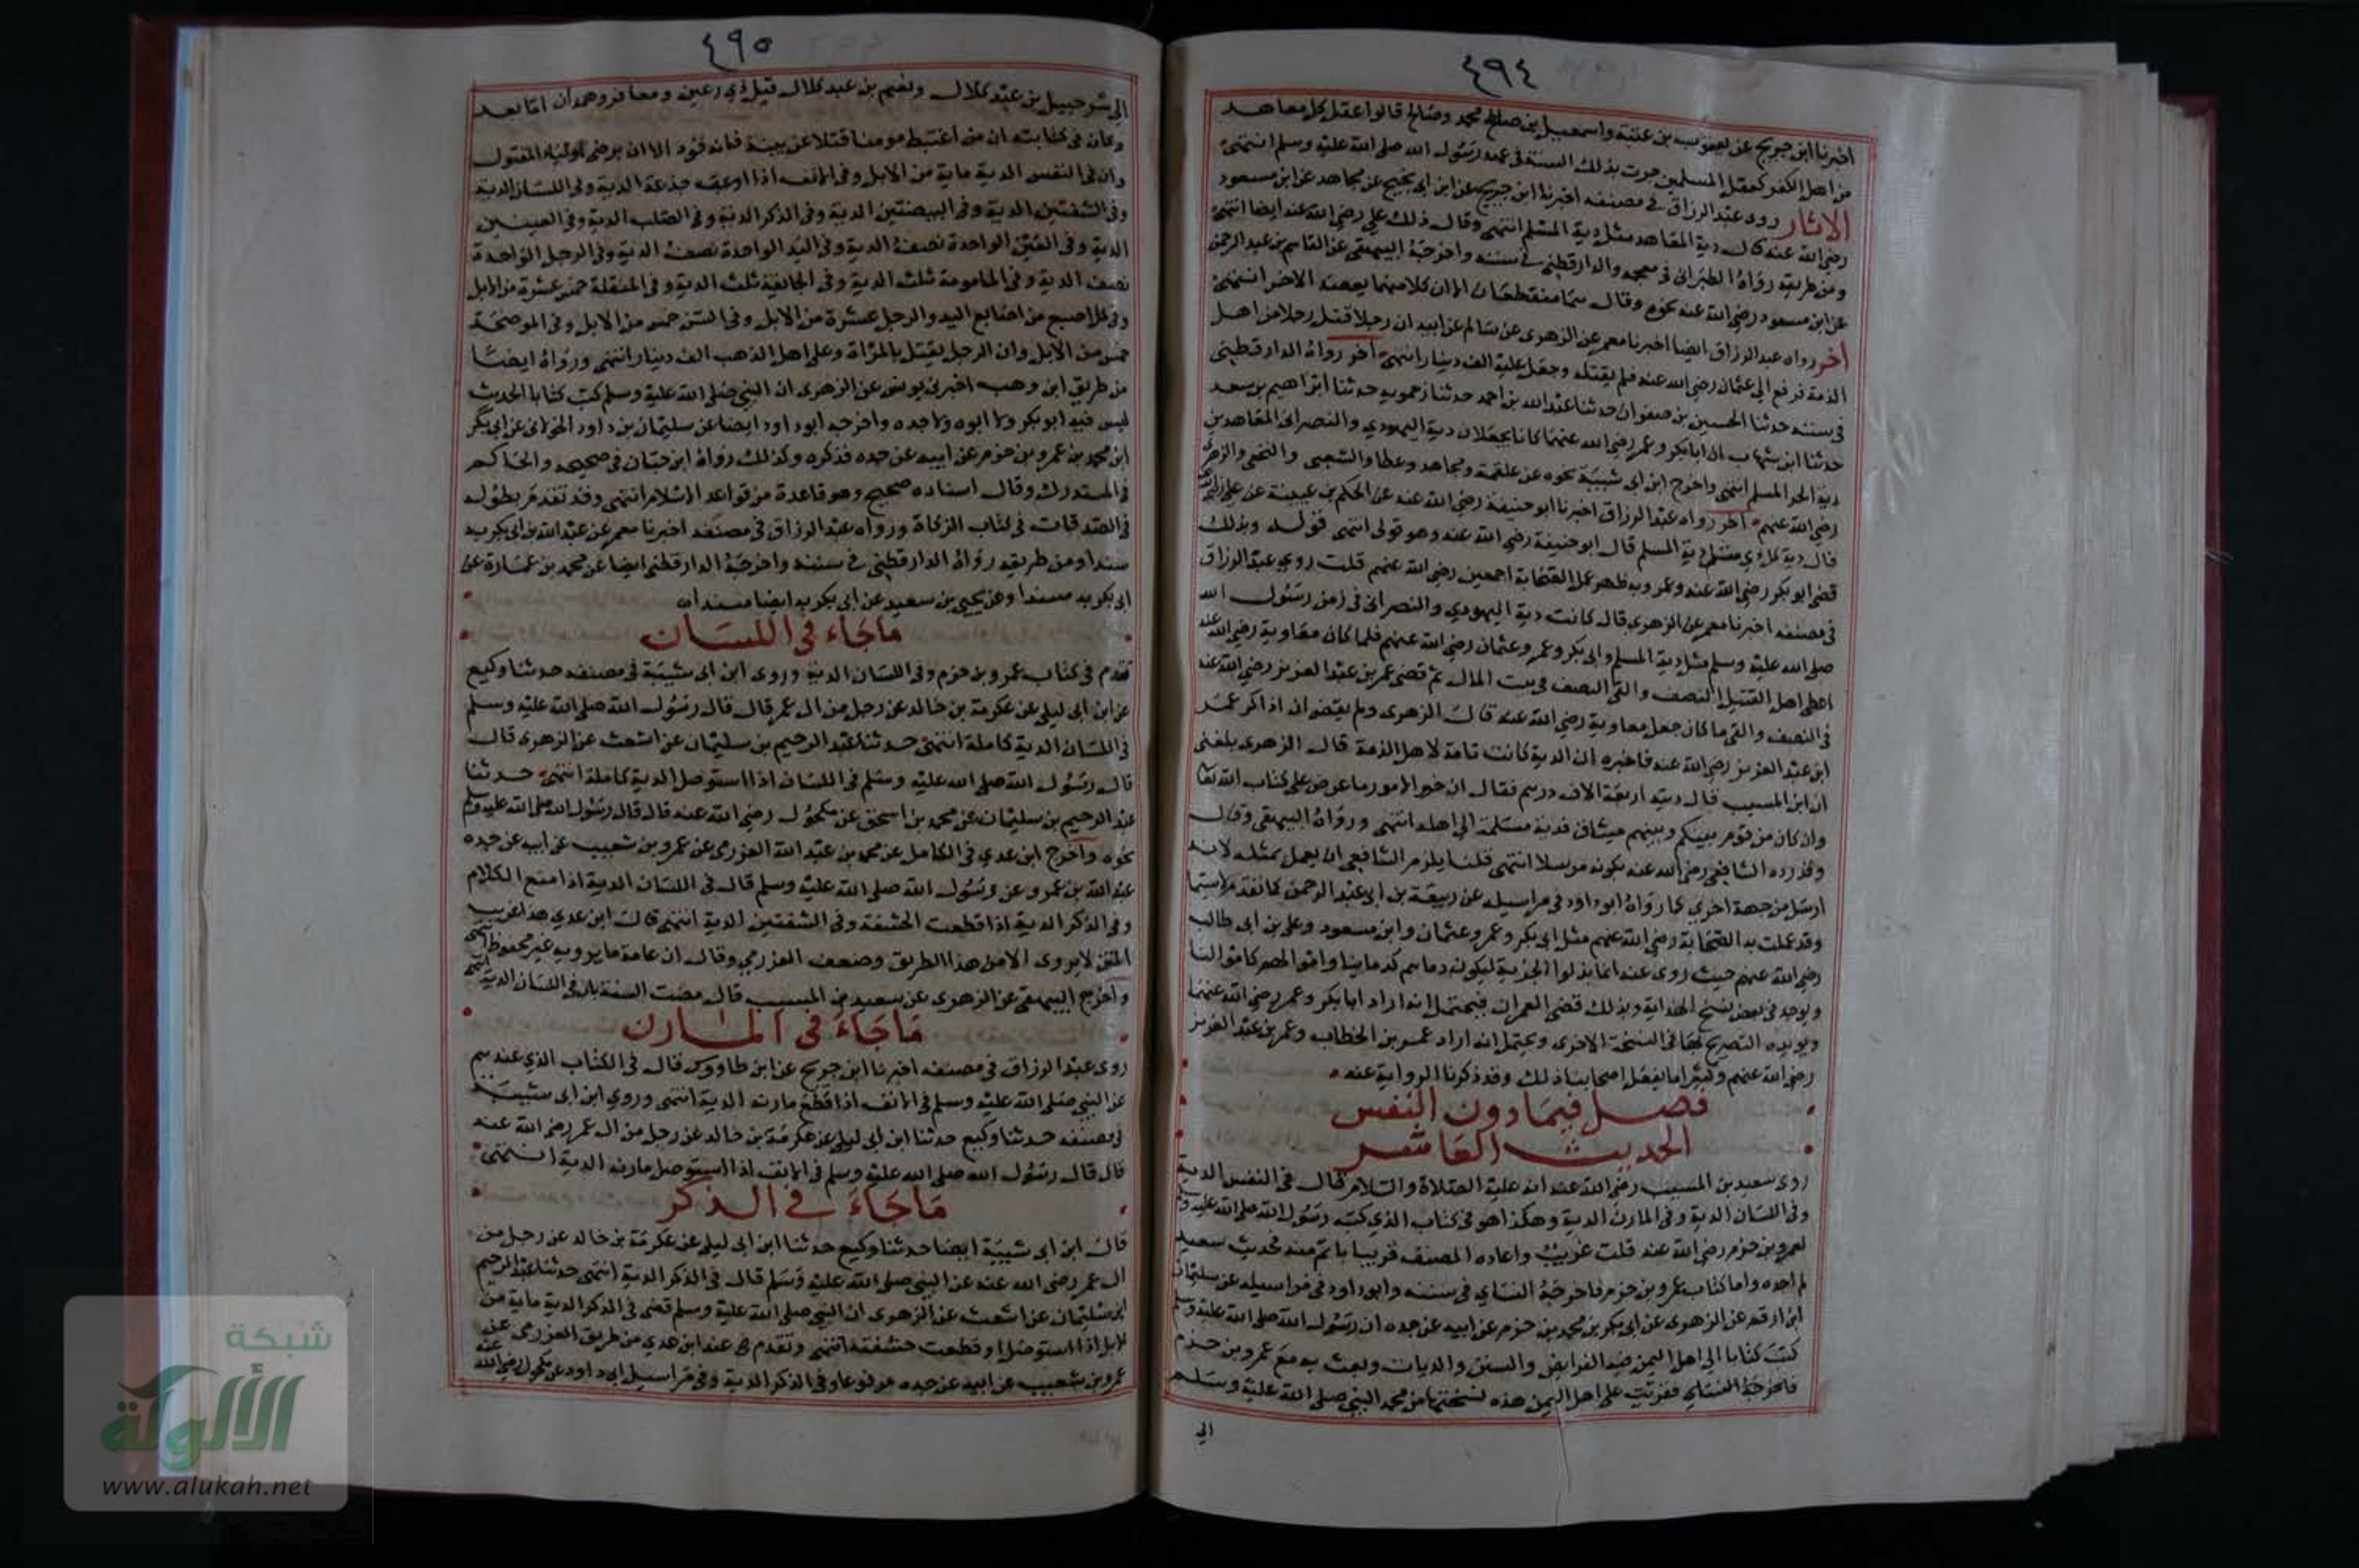 ٤٩٤
اخبرنا ابن جريج عن يعقوب بن عتبة واسمعيل بن محمد وصالح قالوا عقل كل معاهد
من اهل الكفر كعقل المسلمين جرت بذلك السنة فى عهد رسول الله صلى الله عليه وسلم انتهى
الاثار روى عبد الرزاق فى مصنفه اخبرنا ابن جريج عن ابن ابى نجيح عن مجاهد عن ابن مسعود
رضى الله عنه قال دية المعاهد مثل دية المسلم انتهى وقال ذلك على رضى الله عنه ايضا انتهى
ومن طريقه رواه الطبرانى فى معجمه والدارقطنى فى سننه واخرجه البيهقى عن القاسم بن عبد الرحمن
عن ابن مسعود رضى الله عنه نحوه وقال هما منقطعان الا ان كلا منهما يعضد الاخر انتهى
اخر رواه عبد الرزاق ايضا اخبرنا معمر عن الزهرى عن سالم عن ابيه ان رجلا قتل رجلا من اهل
الذمة فرفع الى عثمان رضى الله عنه فلم يقتله وجعل عليه الف دينار انتهى اخر رواه الدارقطنى
فى سننه حدثنا الحسين بن صفوان حدثنا عبد الله بن احمد حدثنا زحمويه حدثنا ابراهيم بن سعد
حدثنا ابن شهاب ان ابا بكر وعمر رضى الله عنهما كانا يجعلان دية اليهودي والنصرانى المعاهدين
دية الحر المسلم انتهى واخرج ابن ابى شيبة نحوه عن علقمة ومجاهد وعطا والشعبى والنخعى والزهرى
رضى الله عنهم اخر رواه عبد الرزاق اخبرنا ابو حنيفة رضى الله عنه عن الحكم بن عيينة عن على
قال دية كل ذي مثل دية المسلم قال ابو حنيفة رضى الله عنه وهو قولى انتهى قوله وبذلك
قضى ابو بكر رضى الله عنه وعمر وبه ظهر عمل الصحابة اجمعين رضى الله عنهم قلت روى عبد الرزاق
فى مصنفه اخبرنا معمر عن الزهرى قال كانت دية اليهودي والنصرانى فى زمن رسول الله
صلى الله عليه وسلم مثل دية المسلم وابى بكر وعمر وعثمان رضى الله عنهم فلما كان معاوية رضى الله عنه
اعطى اهل القتيل النصف والقى النصف فى بيت المال ثم قضى عمر بن عبد العزيز رضى الله عنه
فى النصف والقى ما كان جعل معاوية رضى الله عنه قال الزهرى ولم يقض ان اذاكر عمر
ابن عبد العزيز رضى الله عنه فاخبره ان الدية كانت تامة لاهل الذمة قال الزهرى بلغنى
ان ابن المسيب قال ديته اربعة الاف درهم فقال ان خير الامور ما عرض على كتاب الله تعا
وان كان من قوم بينكم وبينهم ميثاق فدية مسلمة الى اهله انتهى ورواه البيهقى وقال
وقد رده الشافعى رضى الله عنه بكونه مرسلا انتهى قلنا يلزم الشافعى ان يعمل بمثله لانه
ارسل من جهة اخرى كما رواه ابو داود فى مراسيله عن ربيعة بن ابى عبد الرحمن كما تقدم
وقد عملت به الصحابة رضى الله عنهم مثل ابى بكر وعمر وعثمان وابن مسعود وعلى بن ابى طالب
رضى الله عنهم حيث روى عنه انما بذلوا الجزية ليكون دماهم كدماينا واموالهم كاموالنا
ويوجد فى بعض نسخ الهداية وبذلك قضى العمران فيحتمل انه اراد ابا بكر وعمر رضى الله عنهما
ويويده التصريح بهما فى النسخة الاخرى ويحتمل انه اراد عمر بن الخطاب وعمر بن عبد العزيز
رضى الله عنهم وكثيرا ما يفعل اصحابنا ذلك وقد ذكرنا الرواية عنه
فصل فيما دون النفس
الحديث العاشر
روى سعيد بن المسيب رضى الله عنه انه عليه الصلاة والسلام قال فى النفس الدية
وفى اللسان الدية وفى المارن الدية وهكذا هو فى كتاب الذي كتبه رسول الله صلى الله عليه وسلم
لعمرو بن حزم رضى الله عنه قلت غريب واعاده المصنف قريبا باتم منه فحديث سعيد
لم اجده واما كتاب عمرو بن حزم فاخرجه النساي فى سننه وابو داود فى مراسيله عن سليمان
ابن ارقم عن الزهرى عن ابى بكر بن محمد بن حزم عن ابيه عن جده ان رسول الله صلى الله عليه وسلم
كتب كتابا الى اهل اليمن فيه الفرايض والسنن والديات وبعث به مع عمرو بن حزم
فاخرجه النساي فقرئت على اهل اليمن هذه نسختها من محمد النبى صلى الله عليه وسلم
الى
٤٩٥
الى شرحبيل بن عبد كلال ونعيم بن عبد كلال قيل ذي رعين ومعافر وهمدان اما بعد
وكان فى كتابته ان من اعتبط مومنا قتلا عن بينة فانه قود الا ان يرضى اولياء المقتول
وان فى النفس الدية ماية من الابل وفى الانف اذا اوعب جذعه الدية وفى اللسان الدية
وفى الشفتين الدية وفى البيضتين الدية وفى الذكر الدية وفى الصلب الدية وفى العينين
الدية وفى العين الواحدة نصف الدية وفى اليد الواحدة نصف الدية وفى الرجل الواحدة
نصف الدية وفى المامومة ثلث الدية وفى الجائفة ثلث الدية وفى المنقلة خمس عشرة من الابل
وفى كل اصبع من اصابع اليد والرجل عشرة من الابل وفى السن خمس من الابل وفى الموضحة
خمس من الابل وان الرجل يقتل بالمراة وعلى اهل الذهب الف دينار انتهى ورواه ايضا
من طريق ابن وهب اخبرنى يونس عن الزهرى ان النبى صلى الله عليه وسلم كتب كتابا الحديث
ليس فيه ابو بكر ولا ابوه ولا جده واخرجه ابو داود ايضا عن سليمان بن داود الخولانى عن ابى بكر
ابن محمد بن عمرو بن حزم عن ابيه عن جده فذكره وكذلك رواه ابن حبان فى صحيحه والحاكم
فى المستدرك وقال اسناده صحيح وهو قاعدة من قواعد الاسلام انتهى وقد تقدم بطوله
فى الصدقات فى كتاب الزكاة ورواه عبد الرزاق فى مصنفه اخبرنا معمر عن عبد الله بن ابى بكر به
مسندا ومن طريقه رواه الدارقطنى فى سننه واخرجه الدارقطنى ايضا عن محمد بن عمارة عن
ابى بكر به مسندا وعن يحيى بن سعيد عن ابى بكر به ايضا مسندا
ما جاء فى اللسان
تقدم فى كتاب عمرو بن حزم وفى اللسان الدية وروى ابن ابى شيبة فى مصنفه حدثنا وكيع
عن ابن ابى ليلى عن عكرمة بن خالد عن رجل من ال عمر قال قال رسول الله صلى الله عليه وسلم
فى اللسان الدية كاملة انتهى حدثنا عبد الرحيم بن سليمان عن اشعث عن الزهرى قال
قال رسول الله صلى الله عليه وسلم فى اللسان اذا استوصل الدية كاملة انتهى حدثنا
عبد الرحيم بن سليمان عن محمد بن اسحق عن مكحول رضى الله عنه قال قال رسول الله صلى الله عليه وسلم
نحوه واخرج ابن عدي فى الكامل عن محمد بن عبيد الله العزرمى عن عمرو بن شعيب عن ابيه عن جده
عبد الله بن عمرو عن رسول الله صلى الله عليه وسلم قال فى اللسان الدية اذا منع الكلام
وفى الذكر الدية اذا قطعت الحشفة وفى الشفتين الدية انتهى قال ابن عدي هذا غريب
المتن لا يروى الا من هذا الطريق وضعف العزرمى وقال ان عامة ما يرويه غير محفوظ انتهى
واخرج البيهقى عن الزهرى عن سعيد بن المسيب قال مضت السنة بان فى اللسان الدية انتهى
ما جاء فى المارن
روى عبد الرزاق فى مصنفه اخبرنا ابن جريج عن ابن طاووس قال فى الكتاب الذي عندهم
عن النبى صلى الله عليه وسلم فى الانف اذا قطع مارنه الدية انتهى وروى ابن ابى شيبة
فى مصنفه حدثنا وكيع حدثنا ابن ابى ليلى عن عكرمة بن خالد عن رجل من ال عمر رضى الله عنه
قال قال رسول الله صلى الله عليه وسلم فى الانف اذا استوصل مارنه الدية انتهى
ما جاء فى الذكر
قال ابن ابى شيبة ايضا حدثنا وكيع حدثنا ابن ابى ليلى عن عكرمة بن خالد عن رجل من
ال عمر رضى الله عنه عن النبى صلى الله عليه وسلم قال فى الذكر الدية انتهى حدثنا عبد الرحيم
ابن سليمان عن اشعث عن الزهرى ان النبى صلى الله عليه وسلم قضى فى الذكر الدية ماية من
الابل اذا استوصل او قطعت حشفته انتهى وتقدم عند ابن عدي من طريق العزرمى عن
عمرو بن شعيب عن ابيه عن جده مرفوعا وفى الذكر الدية وفى مراسيل ابى داود عن مكحول رضى الله عنه
شبكة
الألوكة
www.alukah.net